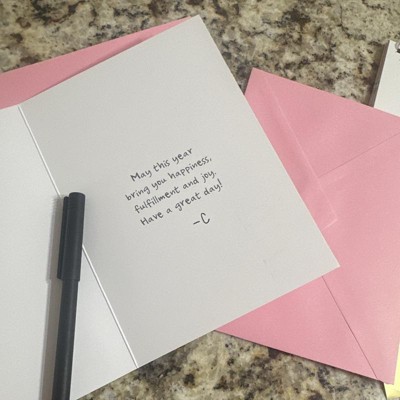 May this year
bring you happiness,
fulfillment and joy.
Have a great day!
-C